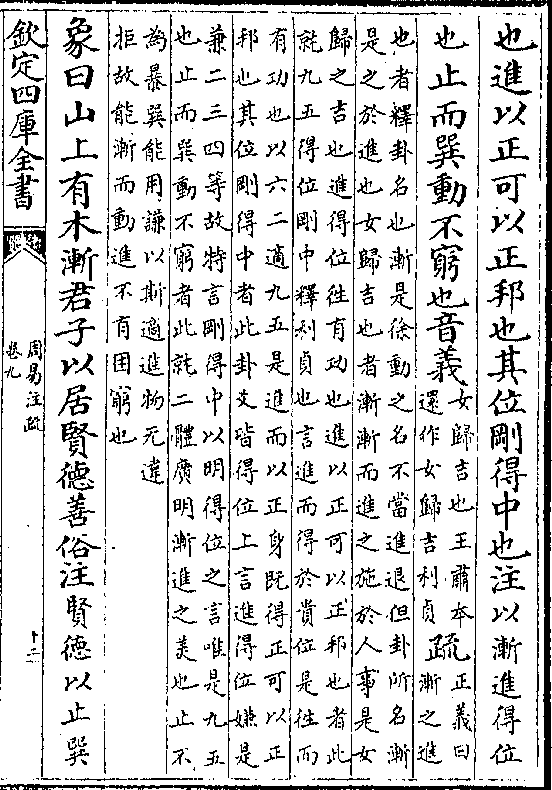 也進以正可以正邦也其位剛得中也注以漸進得位
也止而巽動不窮也音義女歸吉也王肅本
還作女歸吉利貞疏正義曰
漸之進
也者釋卦名也漸是徐動之名不當進退但卦所名漸
是之於進也女歸吉也者漸漸而進之施於人事是女
歸之吉也進得位徃有功也進以正可以正邦也者此
就九五得位剛中釋利貞也言進而得於貴位是徃而
有功也以六二適九五是進而以正身既得正可以正
邦也其位剛得中者此卦爻皆得位上言進得位嫌是
兼二三四等故特言剛得中以明得位之言唯是九五
也止而巽動不窮者此就二體廣明漸進之美也止不
為暴巽能用謙以斯適進物无違
拒故能漸而動進不有困窮也
象曰山上有木漸君子以居賢德善俗注賢德以止巽
欽定四庫全書
周易注疏
卷九
十二